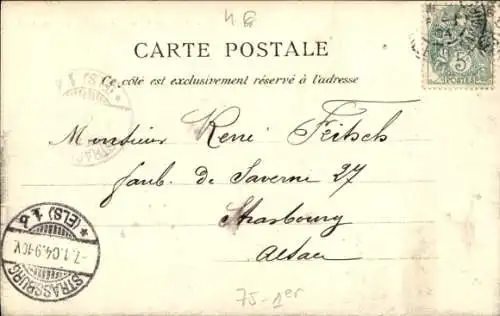 CARTE POSTALE
Ce côté est exclusivement réservé à l'adresse
5
POSTES
Monsieur René Fritsch
faub. de Saverne 27
Strasbourg
Alsace
STRASSBURG
* (ELS) 1 d
-7.1.04.9-10V.
75-1er